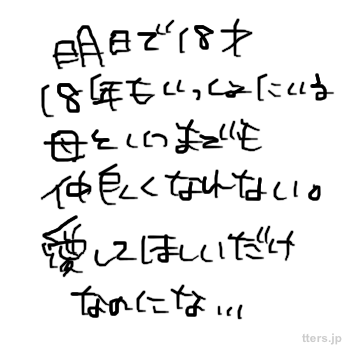 明日で18才
18年もいっしょにいる
母といつまでも
仲良くなれない。
愛してほしいだけ
なのにな...
tters.jp